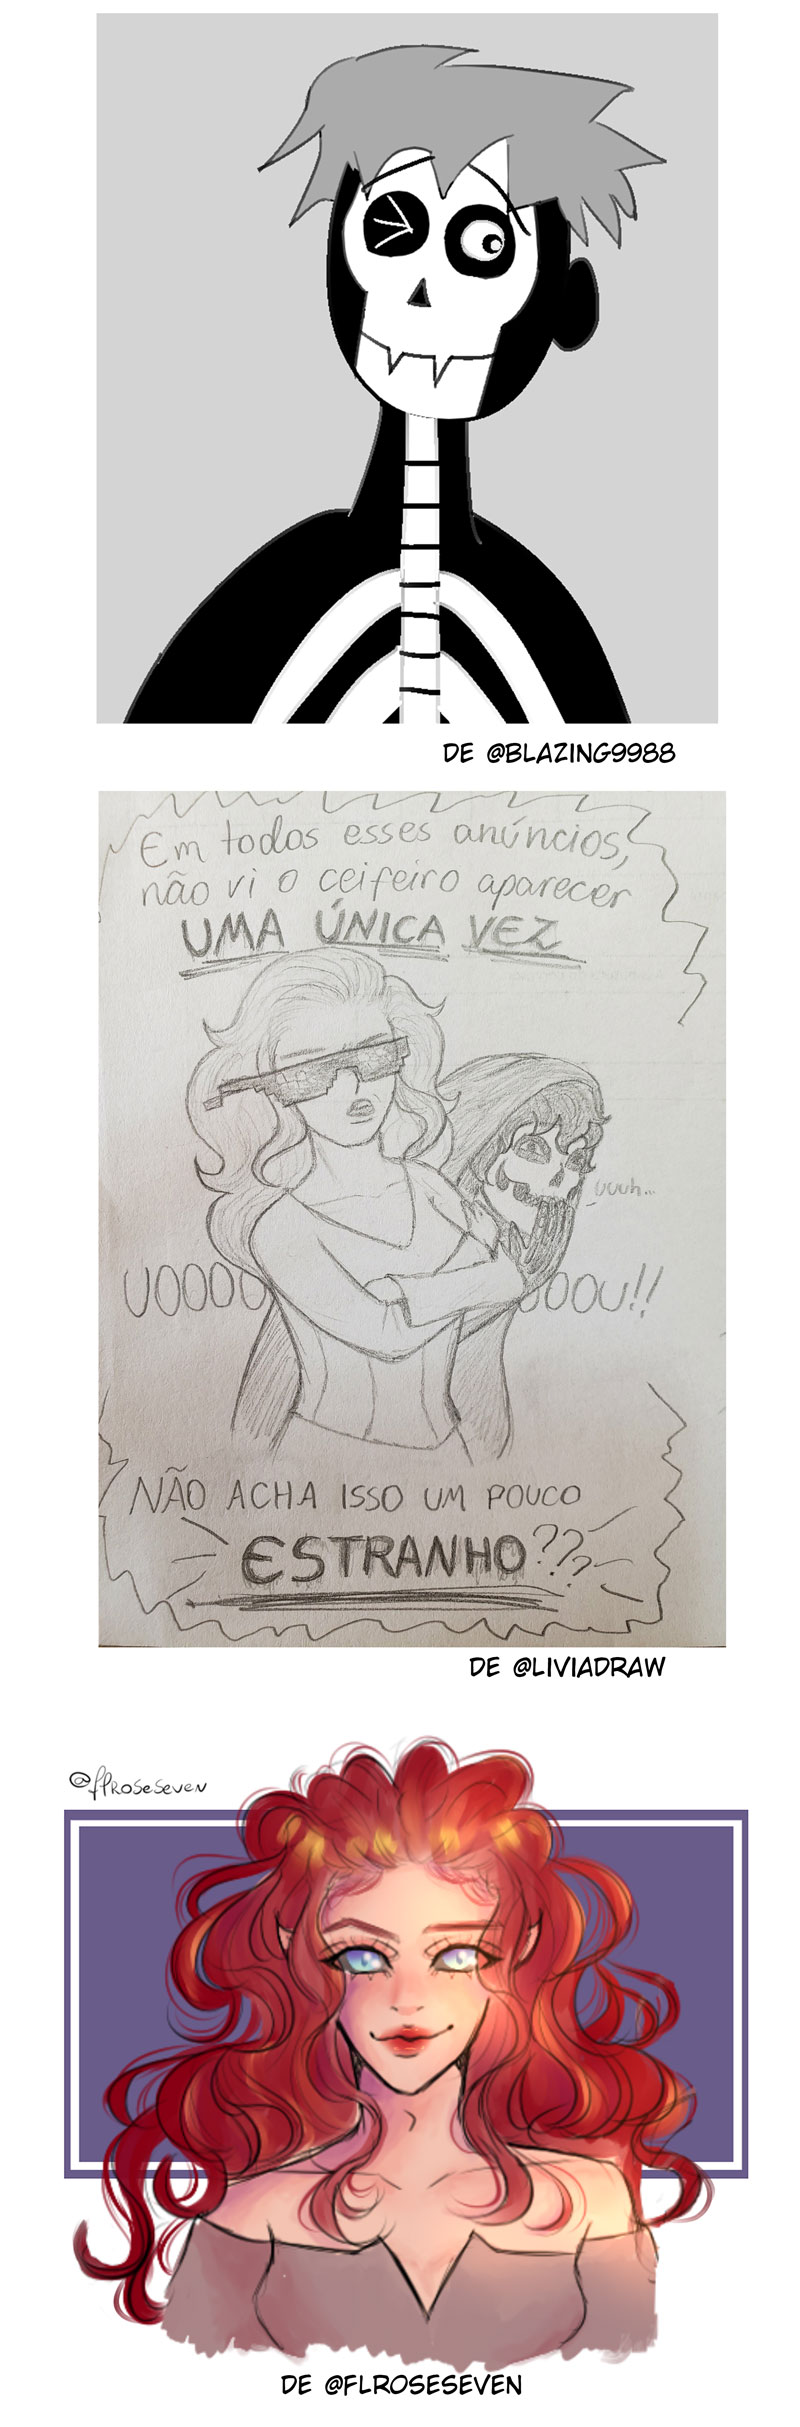 DE @BLAZING9988
Em todos esses anúncios,
não vi o ceifeiro aparecer
UMA ÚNICA VEZ
uuuh...
UOOOU OOOU!!
NÃO ACHA ISSO UM POUCO
ESTRANHO???
DE @LIVIADRAW
@flRoseSeven
DE @FLROSESEVEN